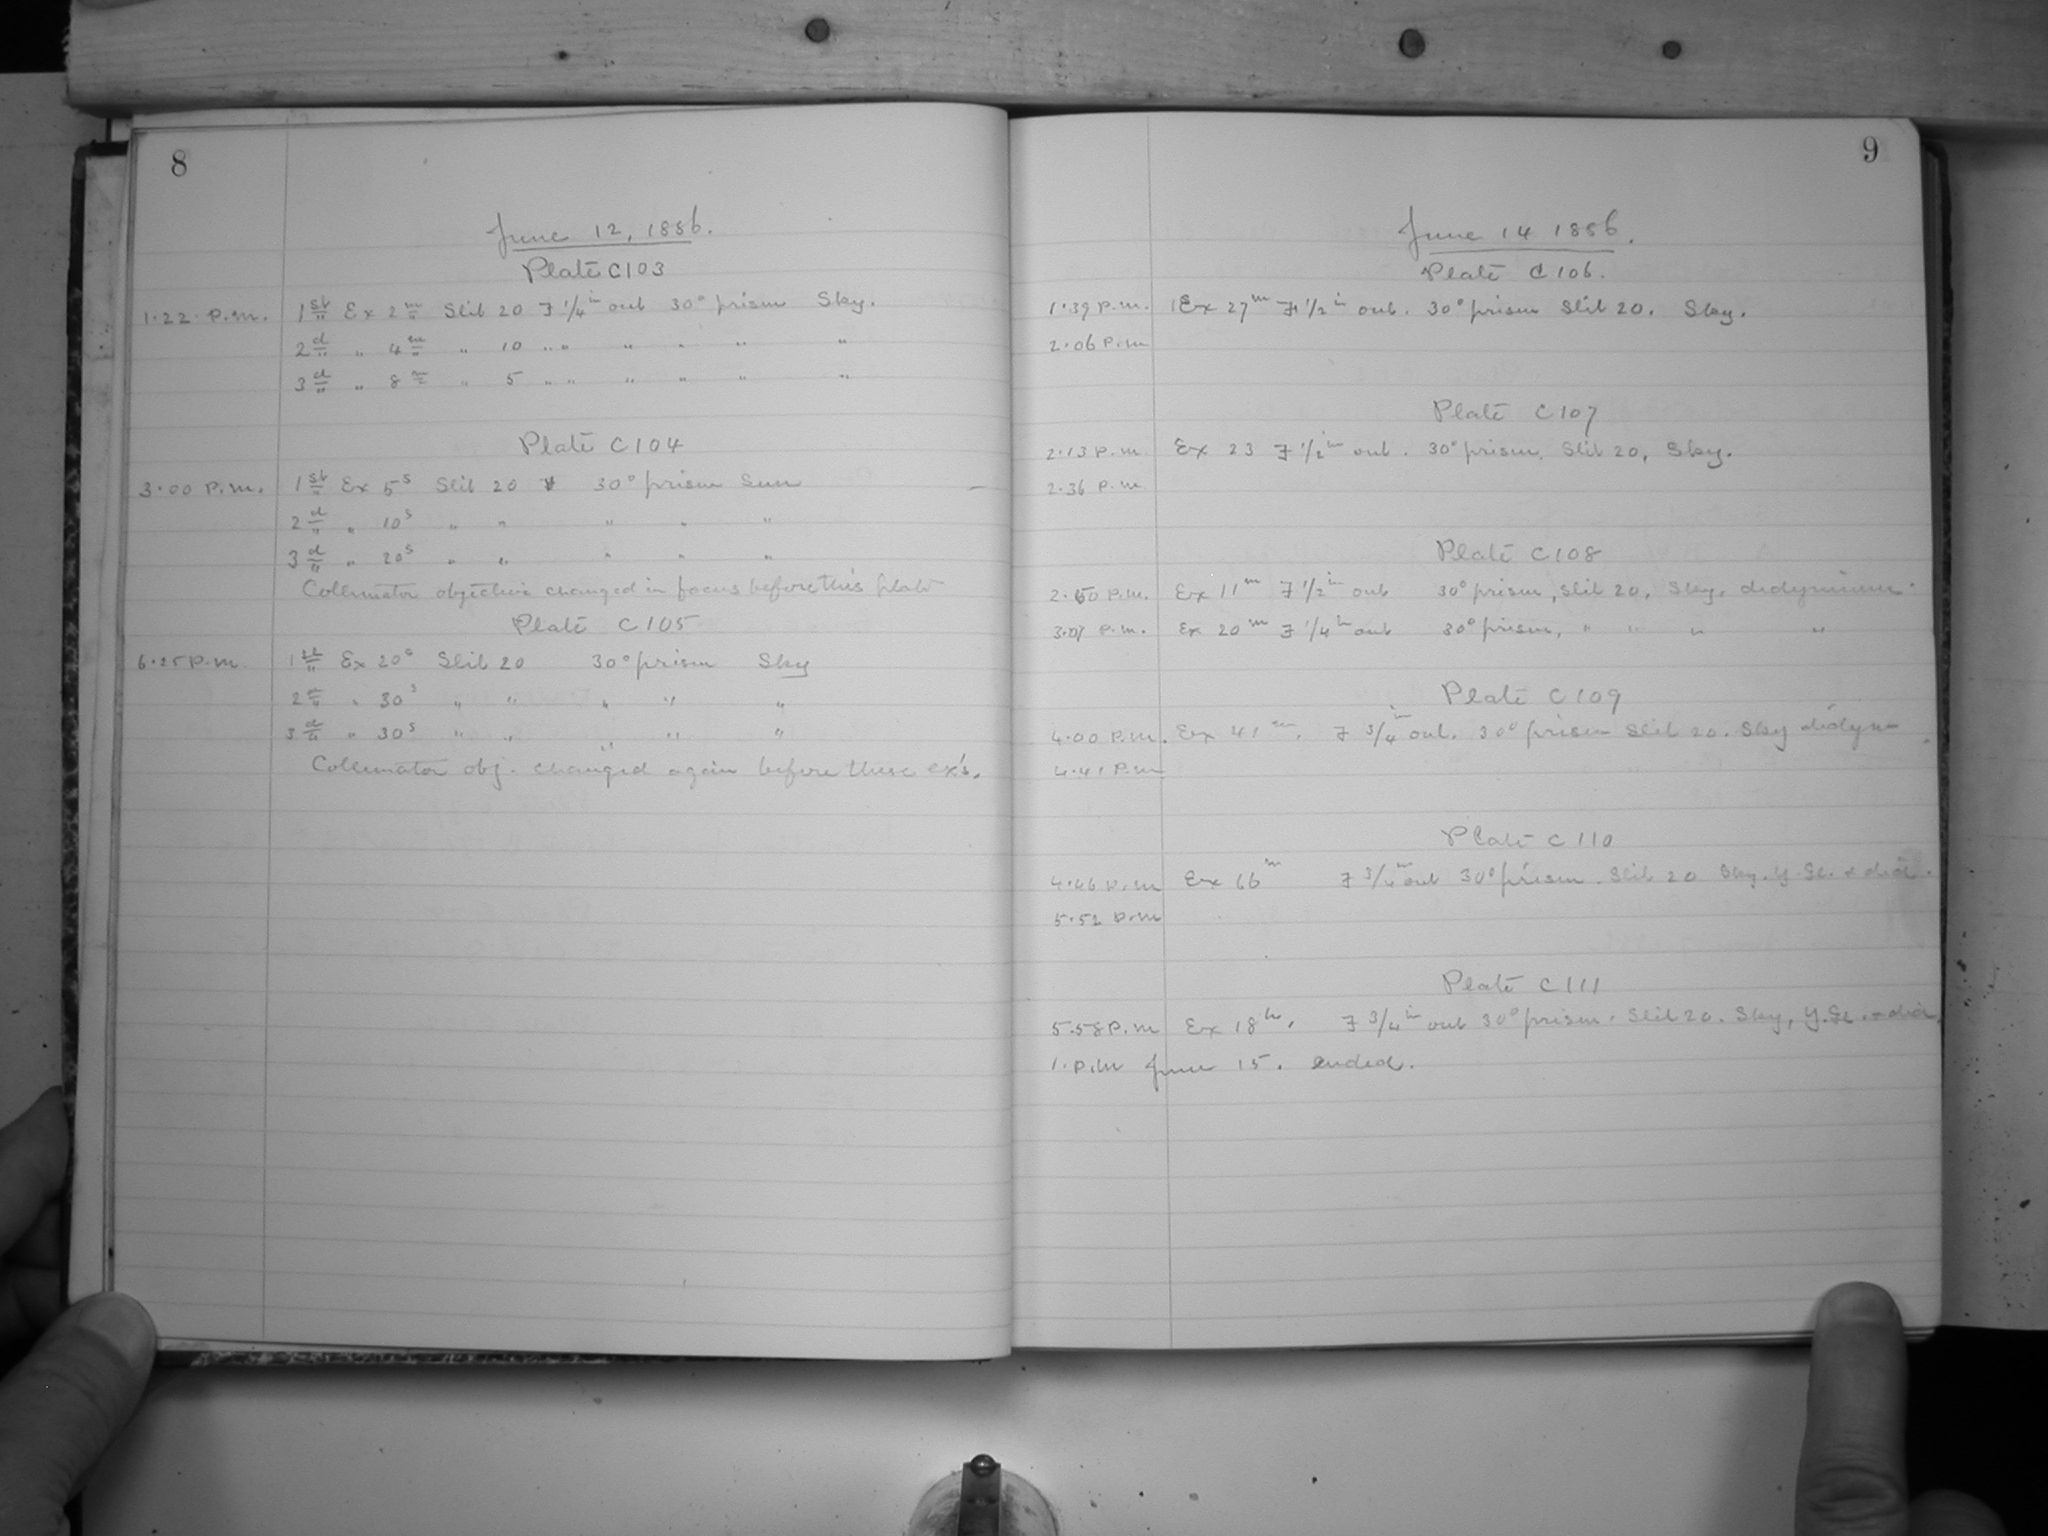 8
June 12, 1886.
Plate C103
1.22. P.m. 1st Ex 2m Slit 20 F 1/4 in out 30° prism Sky.
2d " 4m " 10 " " " " " "
3d " 8m " 5 " " " " " "
Plate C104
3.00 P.m. 1st Ex 5s Slit 20 30° prism Sun
2d " 10s " " " " "
3d " 20s " " " " "
Collimator objective changed in focus before this plate
Plate C105
6.25 P.m. 1st Ex 20s Slit 20 30° prism Sky
2d " 30s " " " " "
3d " 30s " " " " "
Collimator obj. changed again before these ex's.
9
June 14 1886.
Plate C106.
1.39 P.m. Ex 27m F 1/2 in out. 30° prism Slit 20. Sky.
2.06 P.m
Plate C107
2.13 P.m. Ex 23 F 1/2 in out. 30° prism. Slit 20, Sky.
2.36 P.m.
Plate C108
P.m. Ex 11m F 1/2 in out 30° prism, Slit 20. Sky. didymium.
3.07 P.m. Ex 20m F 1/4 in out 30° prism, " " " "
Plate C109
4.00 P.m. Ex 41m. F 3/4 in out. 30° prism Slit 20. Sky didym
4.41 P.m
Plate C110
4.46 P.m Ex 66m F 3/4 in out 30° prism. Slit 20 Sky. Y. Sc. & did.
5.52 P.m
Plate C111
5.58 P.m Ex 18h. F 3/4 in out 30° prism. Slit 20. Sky, Y. Sc. & did.
1. P.m June 15. ended.